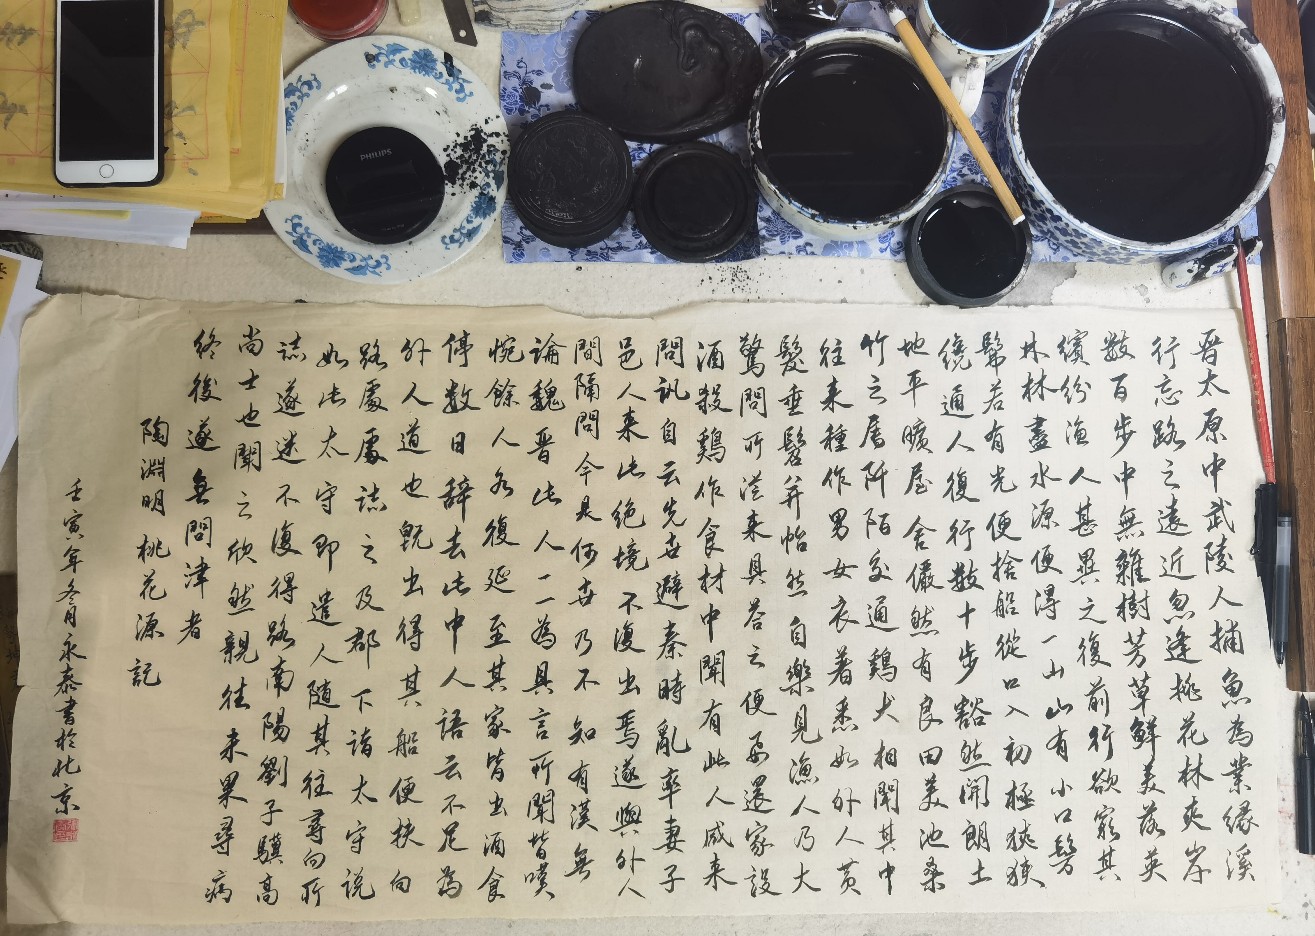 PHILIPS
晋太原中武陵人捕魚為業緣溪
行忘路之遠近忽逢桃花林夾岸
数百步中無雜樹芳草鮮美落英
繽紛漁人甚異之復前行欲窮其
林林盡水源便得一山山有小口髣
髴若有光便捨船從口入初極狹狹
纔通人復行数十步豁然開朗土
地平曠屋舍儼然有良田美池桑
竹之屬阡陌交通鷄犬相聞其中
往来種作男女衣著悉如外人黄
髮垂髫并怡然自樂見漁人乃大
驚問所從来具答之便要還家設
酒殺鷄作食村中聞有此人咸来
問訊自云先世避秦時亂率妻子
邑人来此絶境不復出焉遂與外人
間隔問今是何世乃不知有漢無
論魏晋此人一一為具言所聞皆嘆
惋餘人各復延至其家皆出酒食
停数日辭去此中人語云不足為
外人道也既出得其船便扶向
路處處誌之及郡下詣太守説
如此太守即遣人随其往尋向所
誌遂迷不復得路南陽劉子驥高
尚士也聞之欣然親往未果尋病
終後遂無問津者
陶淵明桃花源記
壬寅年冬月永泰書於北京